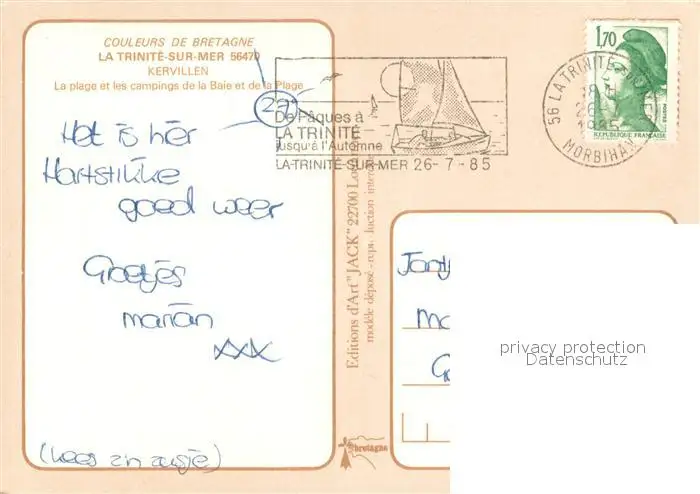 COULEURS DE BRETAGNE
LA TRINITÉ-SUR-MER 56470
KERVILLEN
La plage et les campings de la Baie et de la Plage
29°
Het is hier
Hartstikke
goed weer
Groetjes
marian
xxx
(Lees zn zusje)
De Pâques à
LA TRINITÉ
jusqu'à l'Automne
LA-TRINITÉ-SUR-MER 26-7-85
Editions d'Art "JACK" 22700
modèle déposé - repr. 
bretagne
1,70
POSTES
REPUBLIQUE FRANÇAISE
56 LA TRINITÉ
18H
26-7
1985
MORBIHAN
privacy protection
Datenschutz